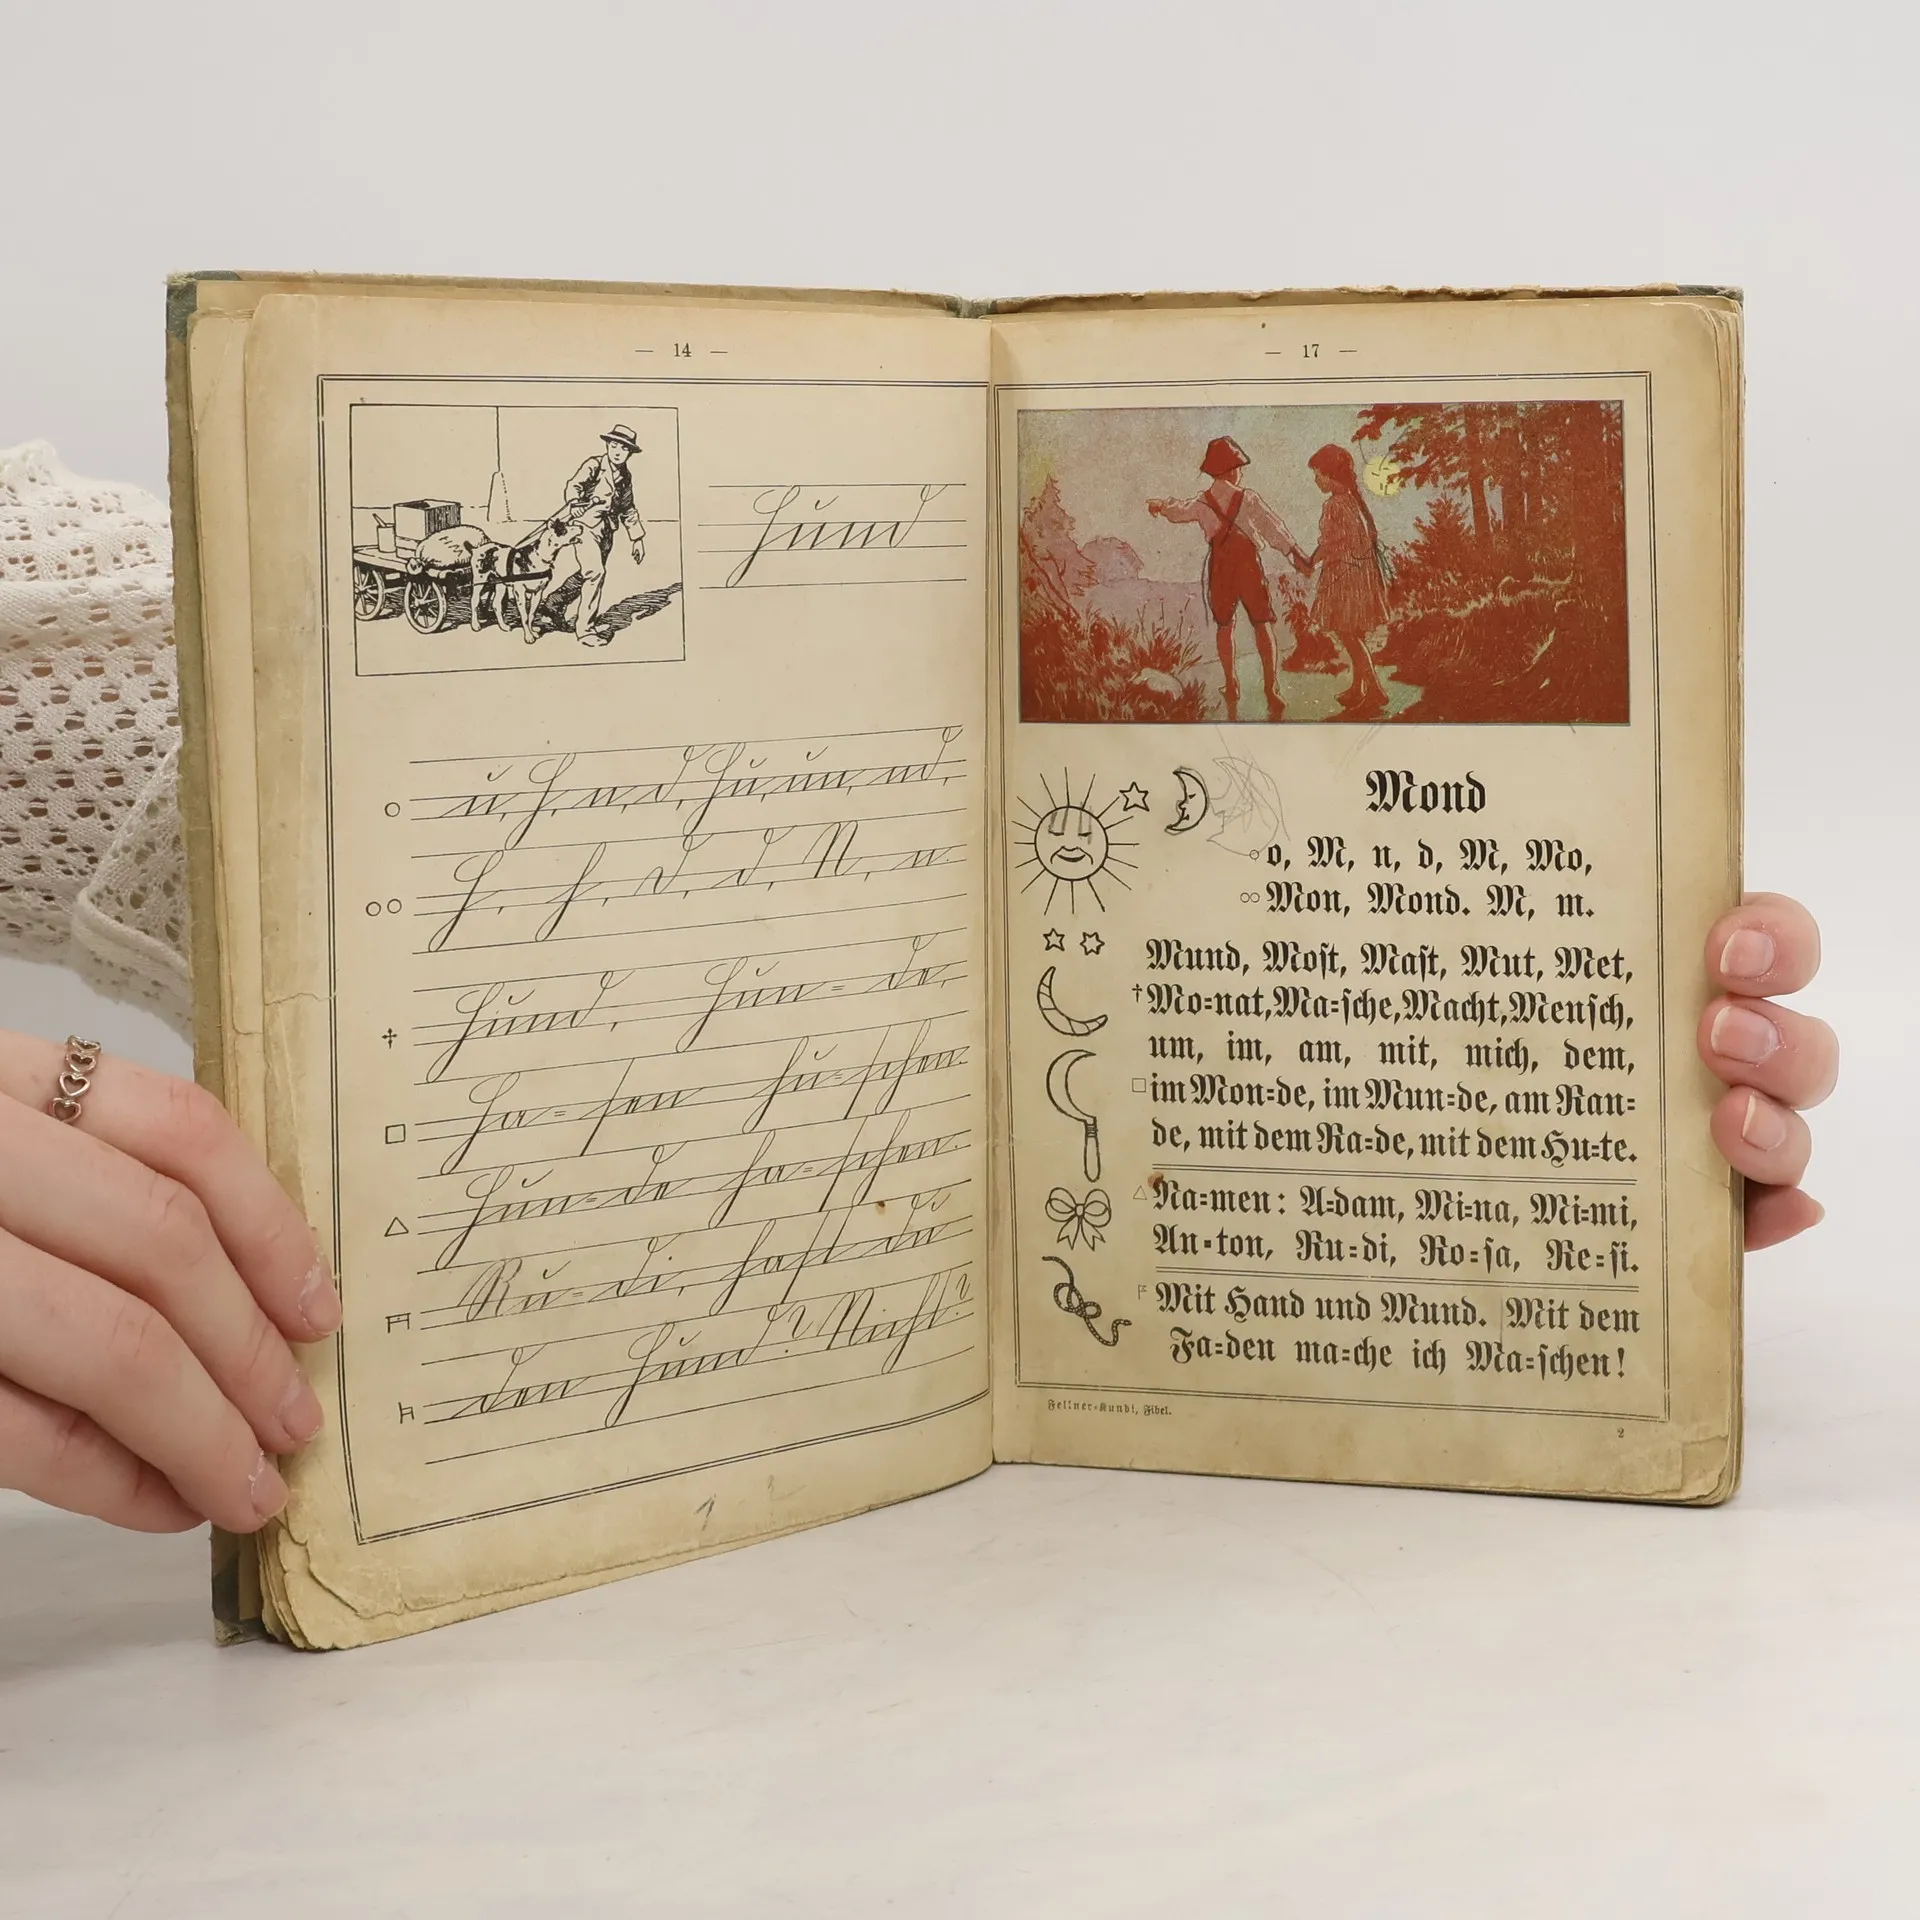 — 14 —
Hund
u, H, n, d, Hu, un, nd,
H, h, d, d, N, n.
Hund, Hun=de,
Ha=sen hu=schen.
Hun=de ha=schen.
Ru=di, hast du
den Hund? Nicht?
1 2
— 17 —
Mond
o, M, n, d, M, Mo,
Mon, Mond. M, m.
Mund, Moſt, Maſt, Mut, Met,
†Mo=nat, Ma=ſche, Macht, Menſch,
um, im, am, mit, mich, dem,
im Mon=de, im Mun=de, am Ran=
de, mit dem Ra=de, mit dem Hu=te.
Na=men: A=dam, Mi=na, Mi=mi,
An=ton, Ru=di, Ro=ſa, Re=ſi.
Mit Hand und Mund. Mit dem
Fa=den ma=che ich Ma=ſchen!
Fellner=Kundi, Fibel.
2